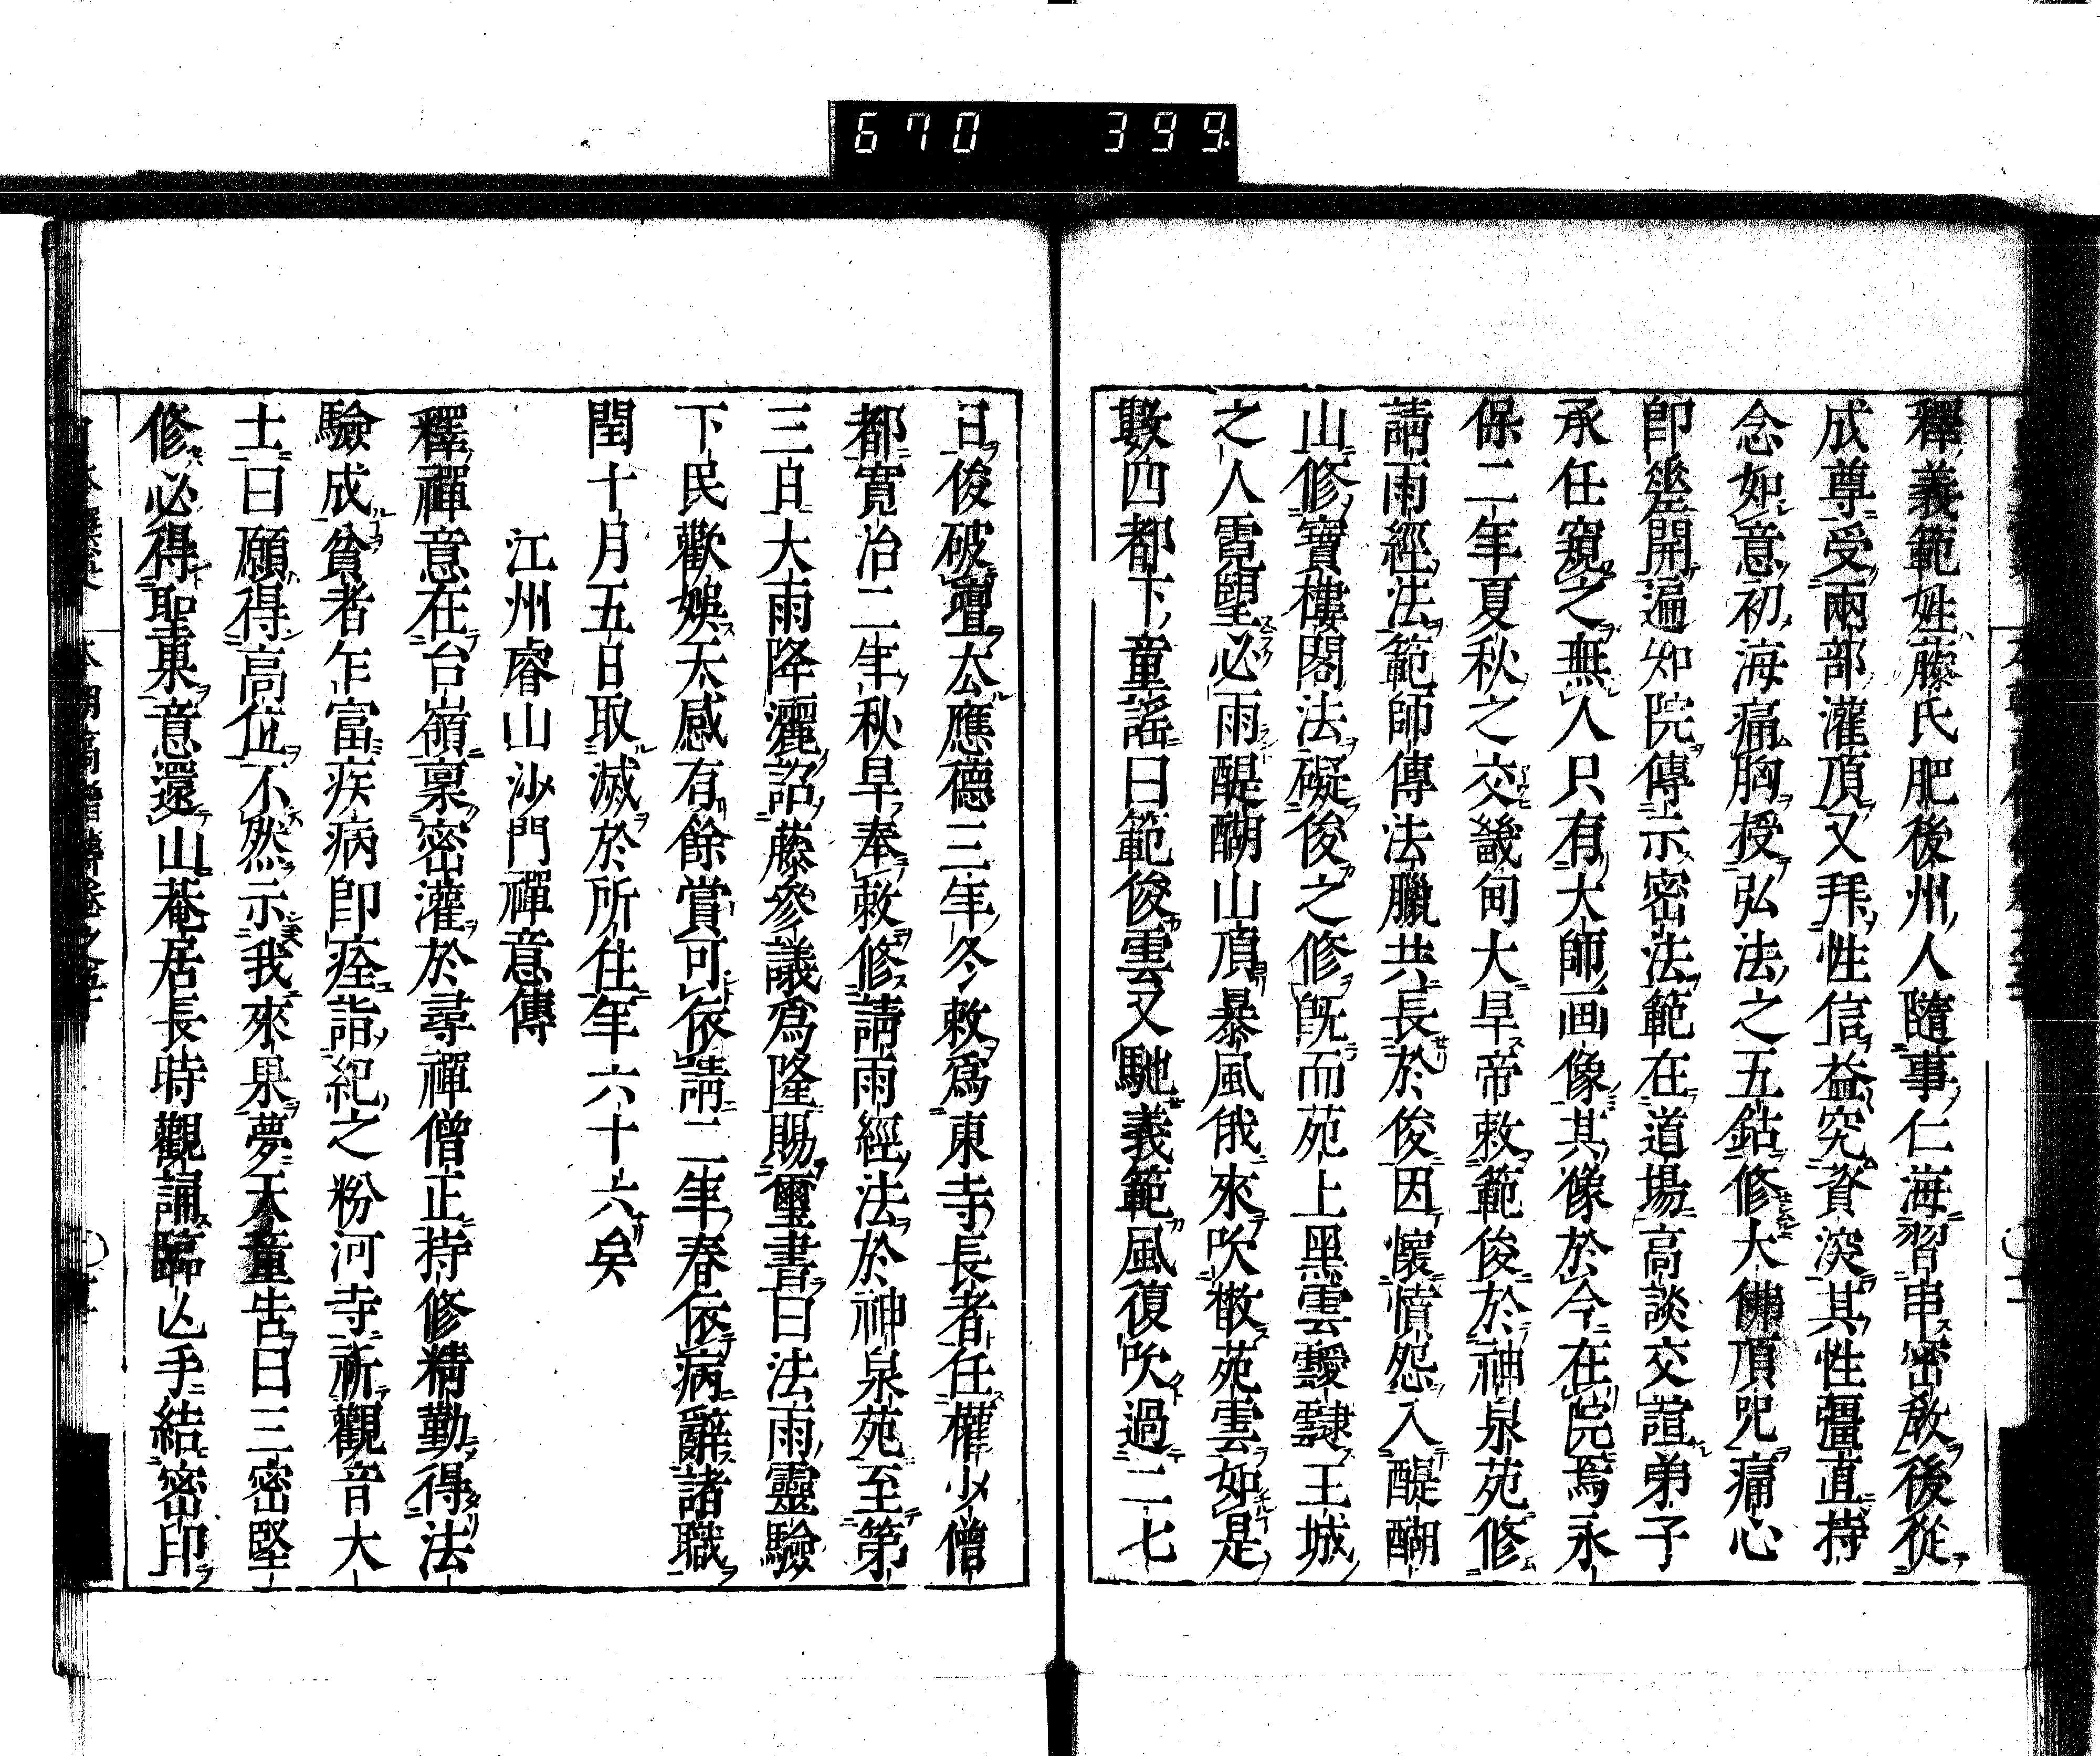 670 399
釋義範姓藤氏肥後州人隨事仁海習串密教後從
成尊受兩部灌頂又拜性信益究資深其性彊直持
念如意初海痛胸授弘法之五鈷修大佛頂咒痛心
即瘥開遍知院傳示密法範在道場高談交諠弟子
承任窺之無人只有大師画像其像於今在院焉永
保二年夏秋之交畿甸大旱帝敕範俊於神泉苑修
請雨經法範師傳法臘共長於俊因懷憤怨入醍醐
山修寶樓閣法礙俊之修既而苑上黑雲靉靆王城
之人霓望必雨醍醐山頂暴風俄來吹散苑雲如是
數四都下童謠曰範俊雲又馳義範風復吹過二七
日俊破壇去應德三年冬敕為東寺長者任權少僧
都寬治二年秋旱奉敕修請雨經法於神泉苑至第
三日大雨降灑詔藤參議為隆賜璽書曰法雨靈驗
下民歡娛天感有餘賞可依請二年春依病辭諸職
閏十月五日取滅於所住年六十六矣
江州睿山沙門禪意傳
釋禪意在台嶺稟密灌於尋禪僧正持修精勤得法
驗成貧者乍富疾病即痊詣紀之粉河寺祈觀音大
士曰願得高位不然示我來果夢天童告曰三密堅
修必得聖果意還山菴居長時觀誦臨亡手結密印